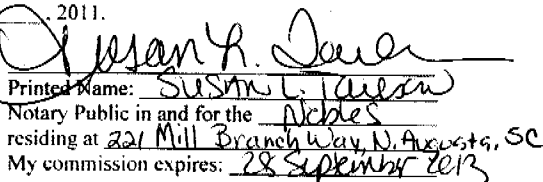 , 2011.
Susan L.
Printed Name: SUSAN L.
Notary Public in and for the Nobles
residing at 221 Mill Branch Way, N. Augusta, SC
My commission expires: 28 September 2013